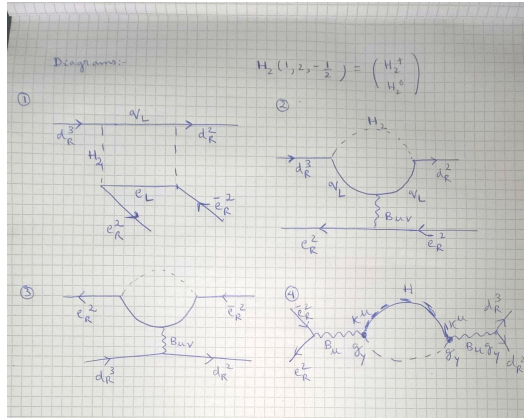 Diagrams:-
H_2 (1, 2, -1/2) = ( H_2^+
H_2^0 )
①
q_L
d_R^3
d_R^2
H_2
e_L
e_R^2
e_R^2
②
H_2
d_R^3
d_R^2
q_L
q_L
B_{μν}
e_R^2
e_R^2
③
e_R^2
e_R^2
B_{μν}
d_R^3
d_R^2
④
H
e_R^2
d_R^3
K^μ
K^μ
B_μ
g_y
g_y
B_μ g_y
e_R^2
d_R^2